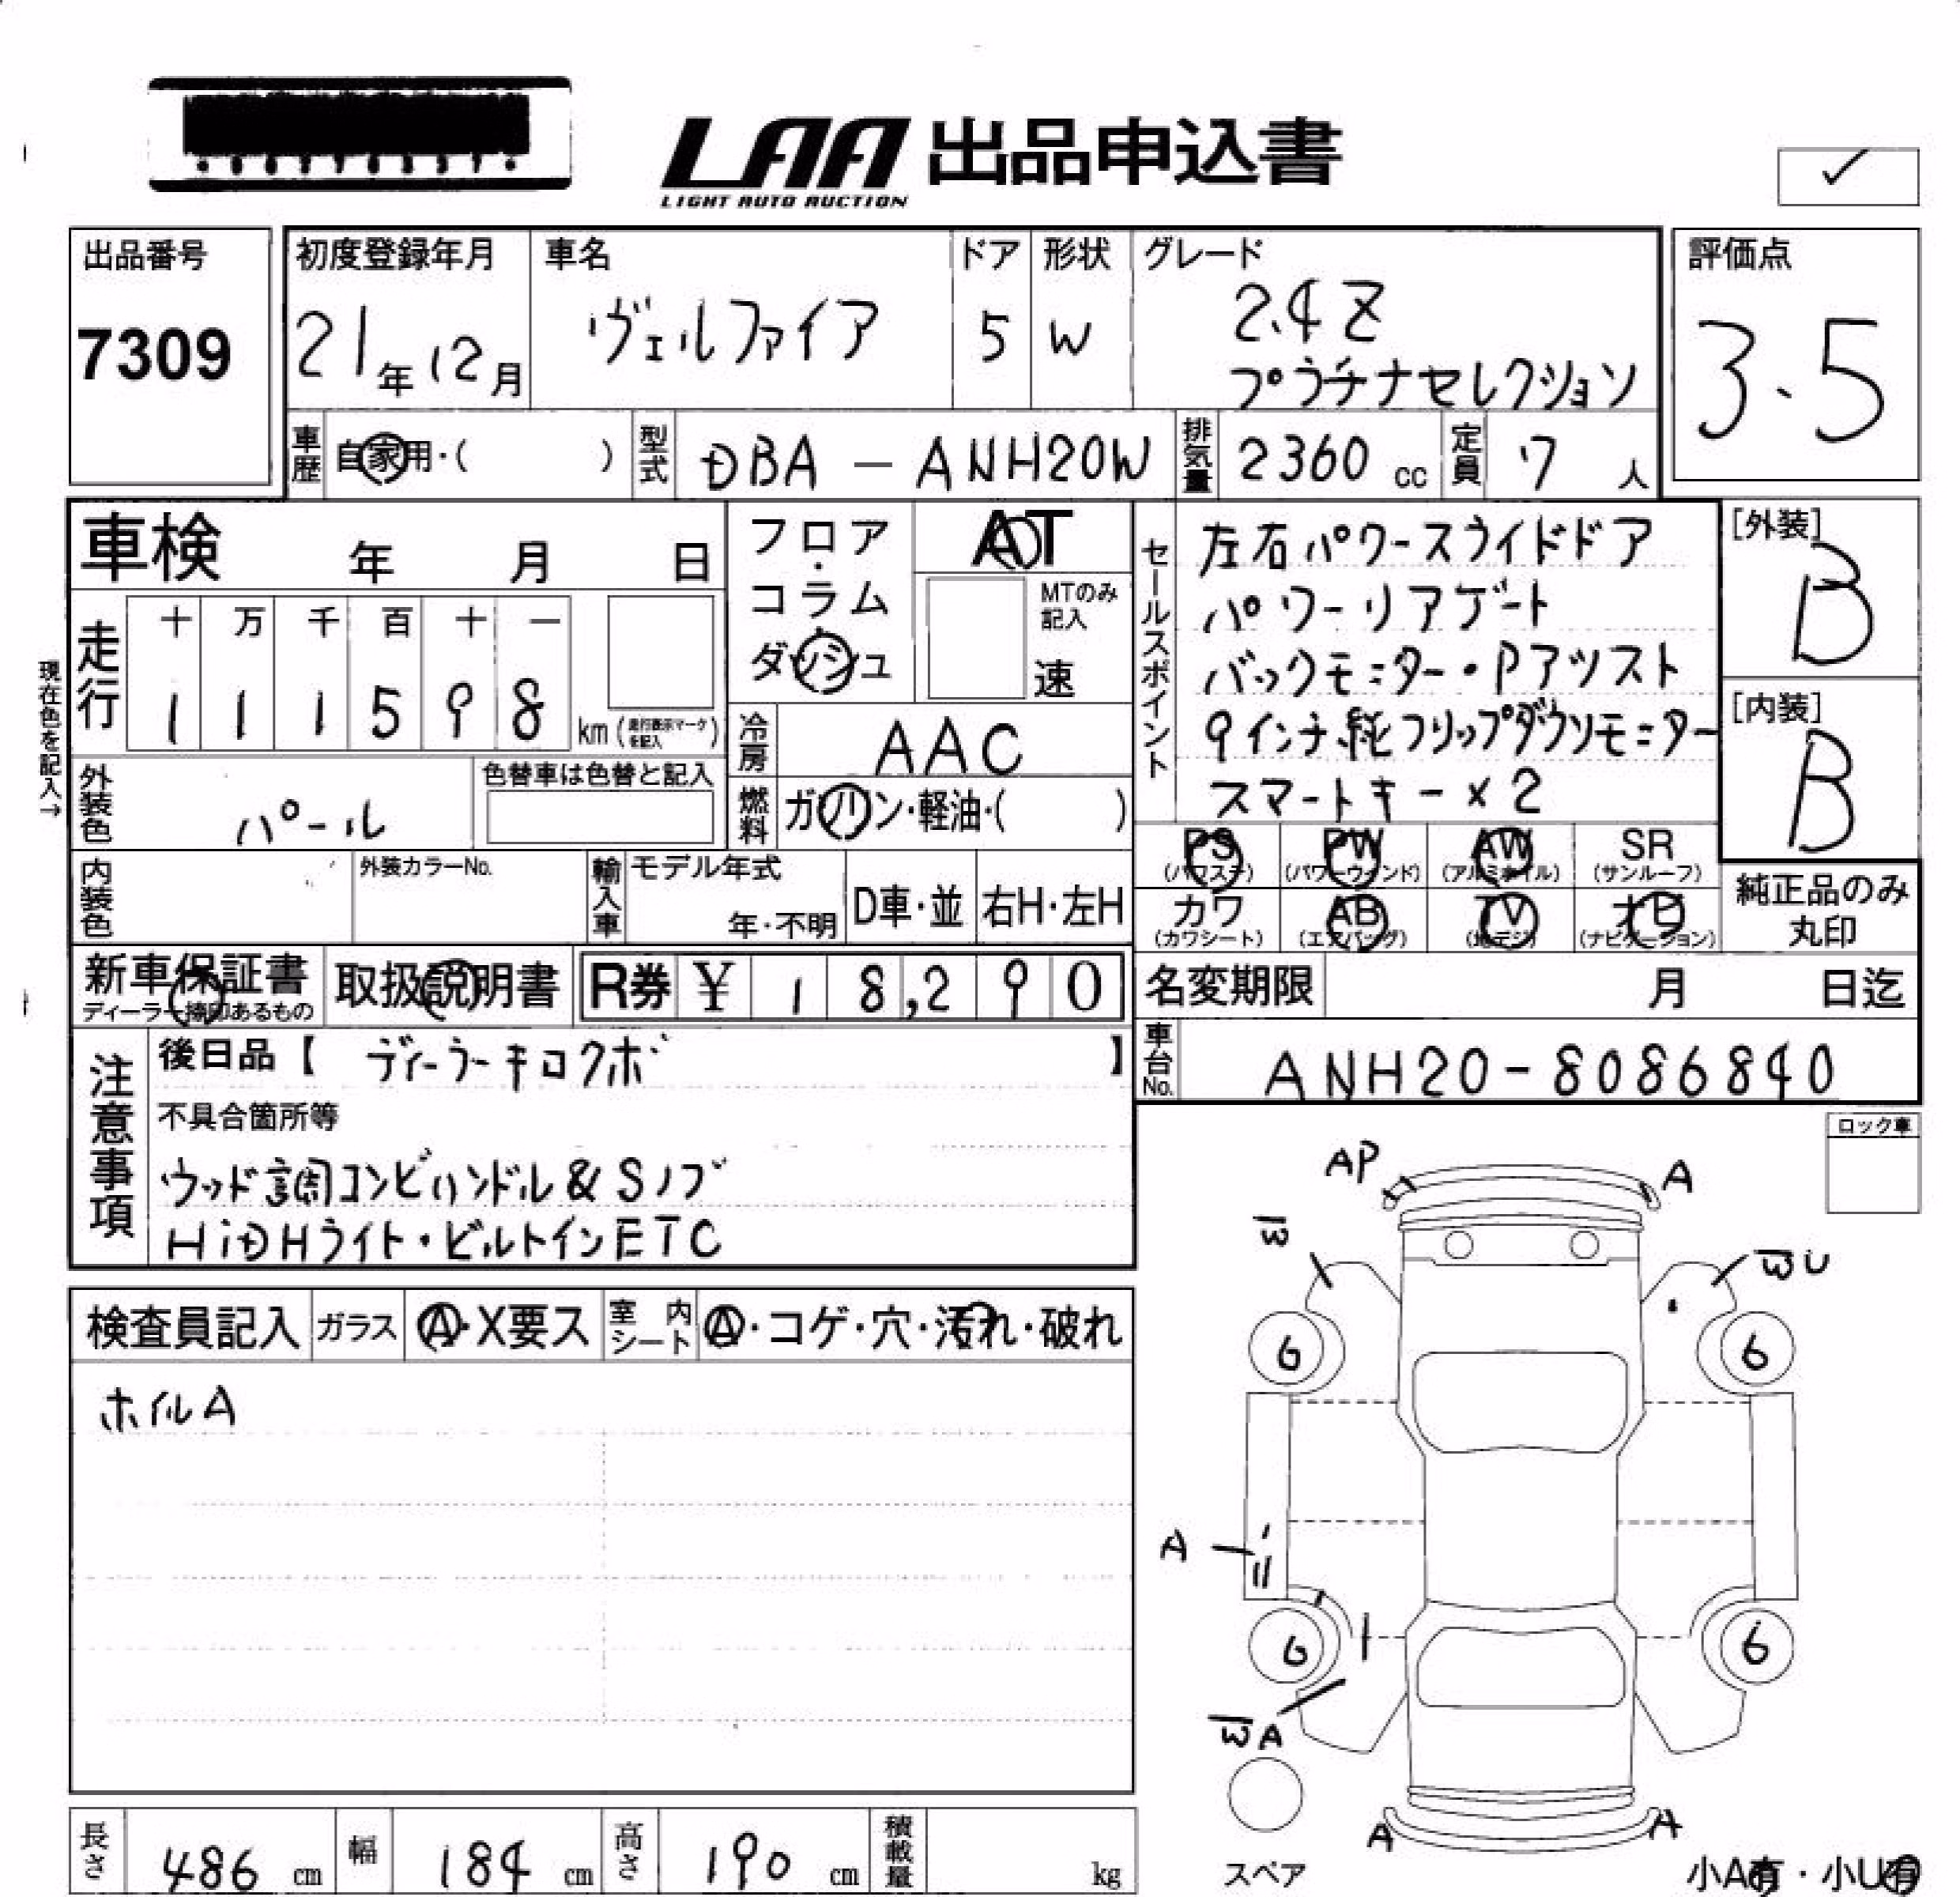 LAA 出品申込書
LIGHT AUTO AUCTION
✓
出品番号
7309
初度登録年月
21年12月
車名
ヴェルファイア
ドア
5
形状
W
グレード
2.4Z
プラチナセレクション
評価点
3.5
車歴
自家用・( )
型式
DBA － ANH20W
排気量
2360 cc
定員
7 人
車検 年 月 日
現在色を記入→
走行
十 万 千 百 十 一
1 1 1 5 9 8 km(走行表示マークを記入)
フロア・コラム・ダッシュ
AT
MTのみ記入
速
冷房
AAC
燃料
ガソリン・軽油・( )
セールスポイント
左右パワースライドドア
パワーリアゲート
バックモニター・Pアシスト
9インチ純フリップダウンモニター
スマートキー×2
[外装]
B
[内装]
B
外装色
パール
色替車は色替と記入
内装色
外装カラーNo.
輸入車
モデル年式
年・不明
D車・並
右H・左H
PS
(パワステ)
PW
(パワーウィンド)
AW
(アルミホイル)
SR
(サンルーフ)
カワ
(カワシート)
AB
(エアバッグ)
TV
(地デジ)
ナビ
(ナビゲーション)
純正品のみ
丸印
新車保証書
ディーラー捺印あるもの
取扱説明書
R券 ¥ 18,290
名変期限 月 日迄
車台No.
ANH20-8086840
注意事項
後日品【 ディーラーキロクボ 】
不具合箇所等
ウッド調コンビハンドル&Sノブ
HiDHライト・ビルトインETC
ロック車
検査員記入
ガラス
A・X要ス
室内シート
A・コゲ・穴・汚れ・破れ
ホイルA
AP
A
W
WU
6
6
A
6
6
WA
A
A
スペア
小A有・小U有
長さ
486 cm
幅
184 cm
高さ
190 cm
積載量
kg